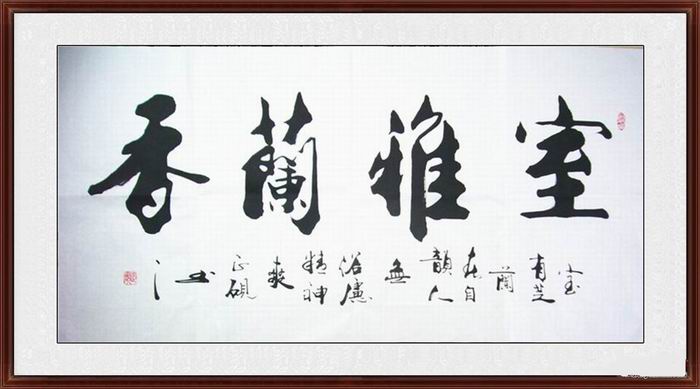 室雅蘭香
室
有芝
蘭
春自
韻人
無
俗慮
精神
爽
正硯
书